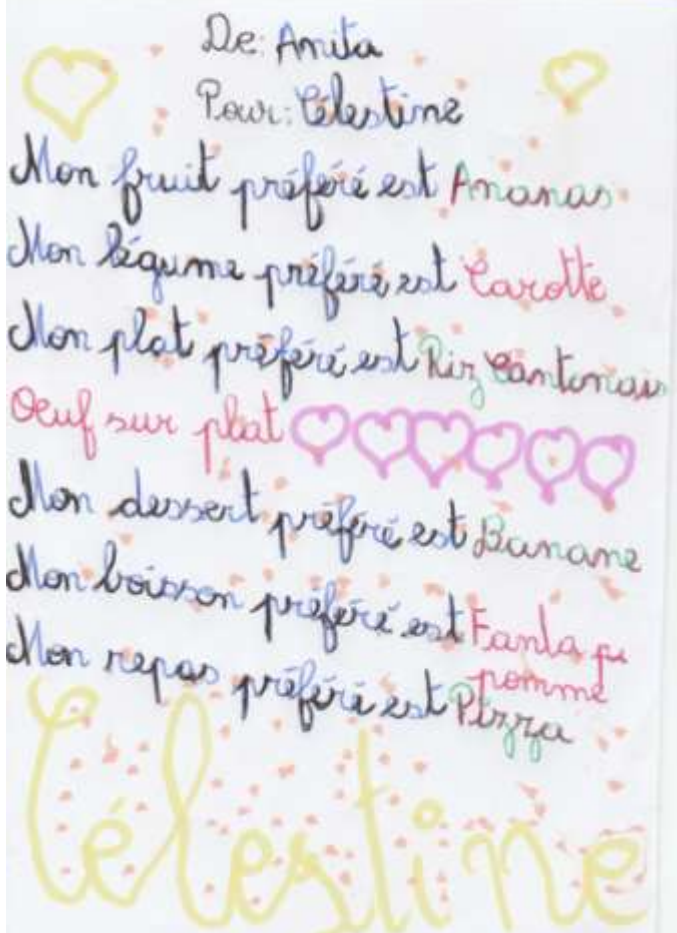 De: Anita
Pour: Célestine
Mon fruit préféré est Ananas
Mon légume préféré est Carotte
Mon plat préféré est Riz Cantonais
Oeuf sur plat
Mon dessert préféré est Banane
Mon boisson préféré est Fanta
pomme
Mon repas préféré est Pizza
Célestine